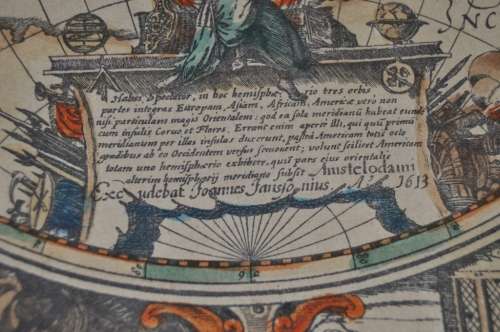 NC
Habes, Spectator, in hoc hemisphæ rio tres orbis
partes integras Europam, Asiam, Africam, Americæ vero non
nisi particulam magis Orientalem: qod ea sola meridianũ habeat eundẽ
cum insulis Coruo et Flores. Errant enim aperte illi, qui qui primũ
meridianum per illas insulas ducunt, postea Americam totis octo
gradibus ab eo Occidentem versus semouent; volunt scilicet Americam
totam uno hemisphærio exhibere, quũ pars eius orientalis
alterius hemisphærij meridiano subsit Amstelodami
Excudebat Joannes Janssonius A.º 1613
9